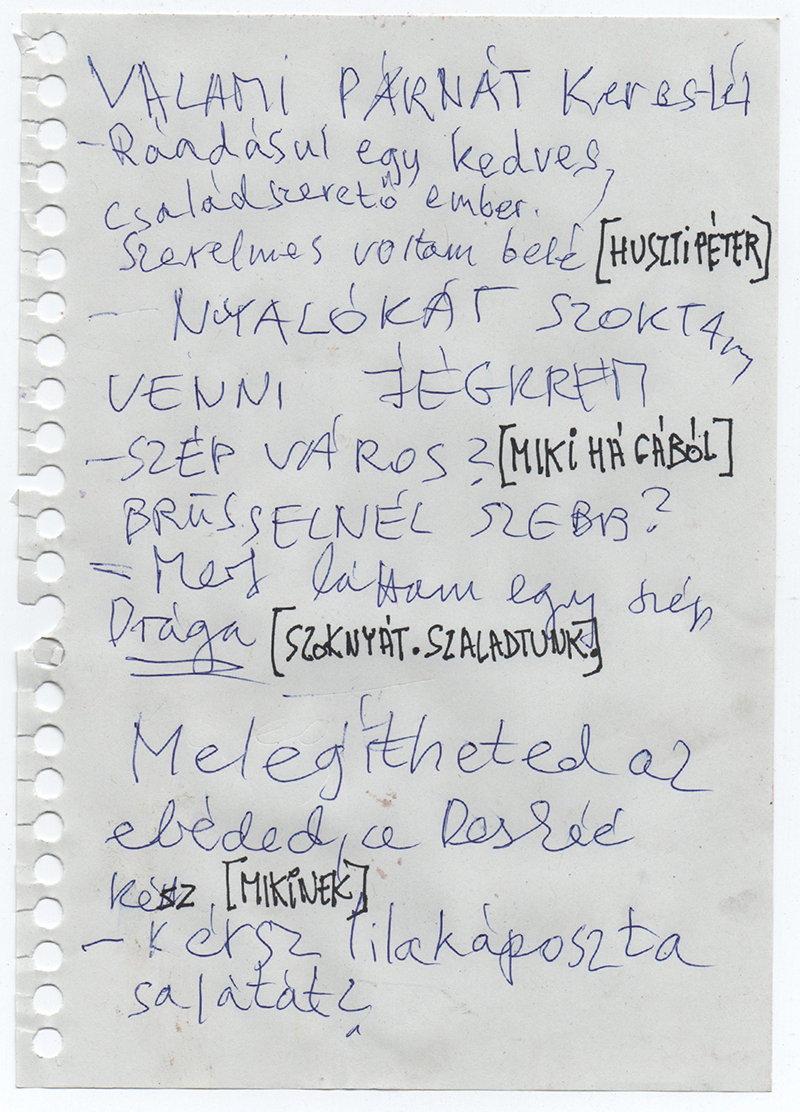 VALAMI PÁRNÁT Keres-lét
- Ráadásul egy kedves,
családszerető ember.
Szerelmes voltam belé [HUSZTI PÉTER]
- NYALÓKÁT SZOKTAm
VENNI JÉGKREM
- SZÉP VÁROS? [MIKI HÁGÁBÓL]
BRÜSSELNÉL SZEBB?
- Mert láttam egy szép
Drága [SZOKNYÁT. SZALADTUNK.]
Melegítheted az
ebéded, a
kész, [MIKINEK]
- Kérsz lilakáposzta
salátát?